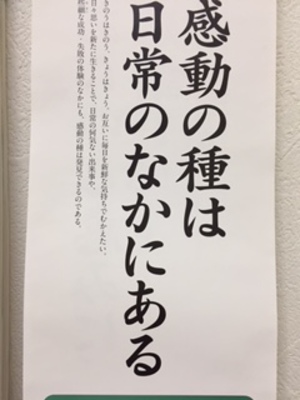 感動の種は
日常のなかにある
きのうはきのう、きょうはきょう。お互いに毎日を新鮮な気持ちでむかえたい。
日々思いを新たに生きることで、日常の何気ない出来事や、
些細な成功・失敗の体験のなかにも、感動の種は発見できるのである。